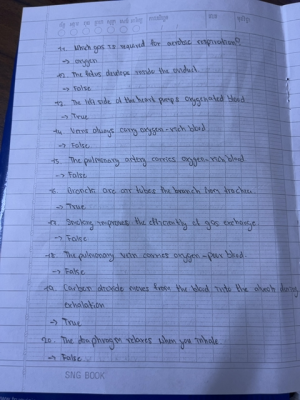 11. Which gas is required for aerobic respiration?
→ oxygen
12. The fetus develops inside the oviduct.
→ False
13. The left side of the heart pumps oxygenated blood.
→ True
14. Veins always carry oxygen-rich blood.
→ False
15. The pulmonary artery carries oxygen-rich blood.
→ False
16. Bronchi are air tubes the branch from trachea.
→ True
17. Smoking improves the efficiently of gas exchange.
→ False
18. The pulmonary vein carries oxygen-poor blood.
→ False
19. Carbon dioxide moves from the blood into the alveoli during
exhalation
→ True
20. The diaphragm relaxes when you inhale.
→ False
SNG BOOK